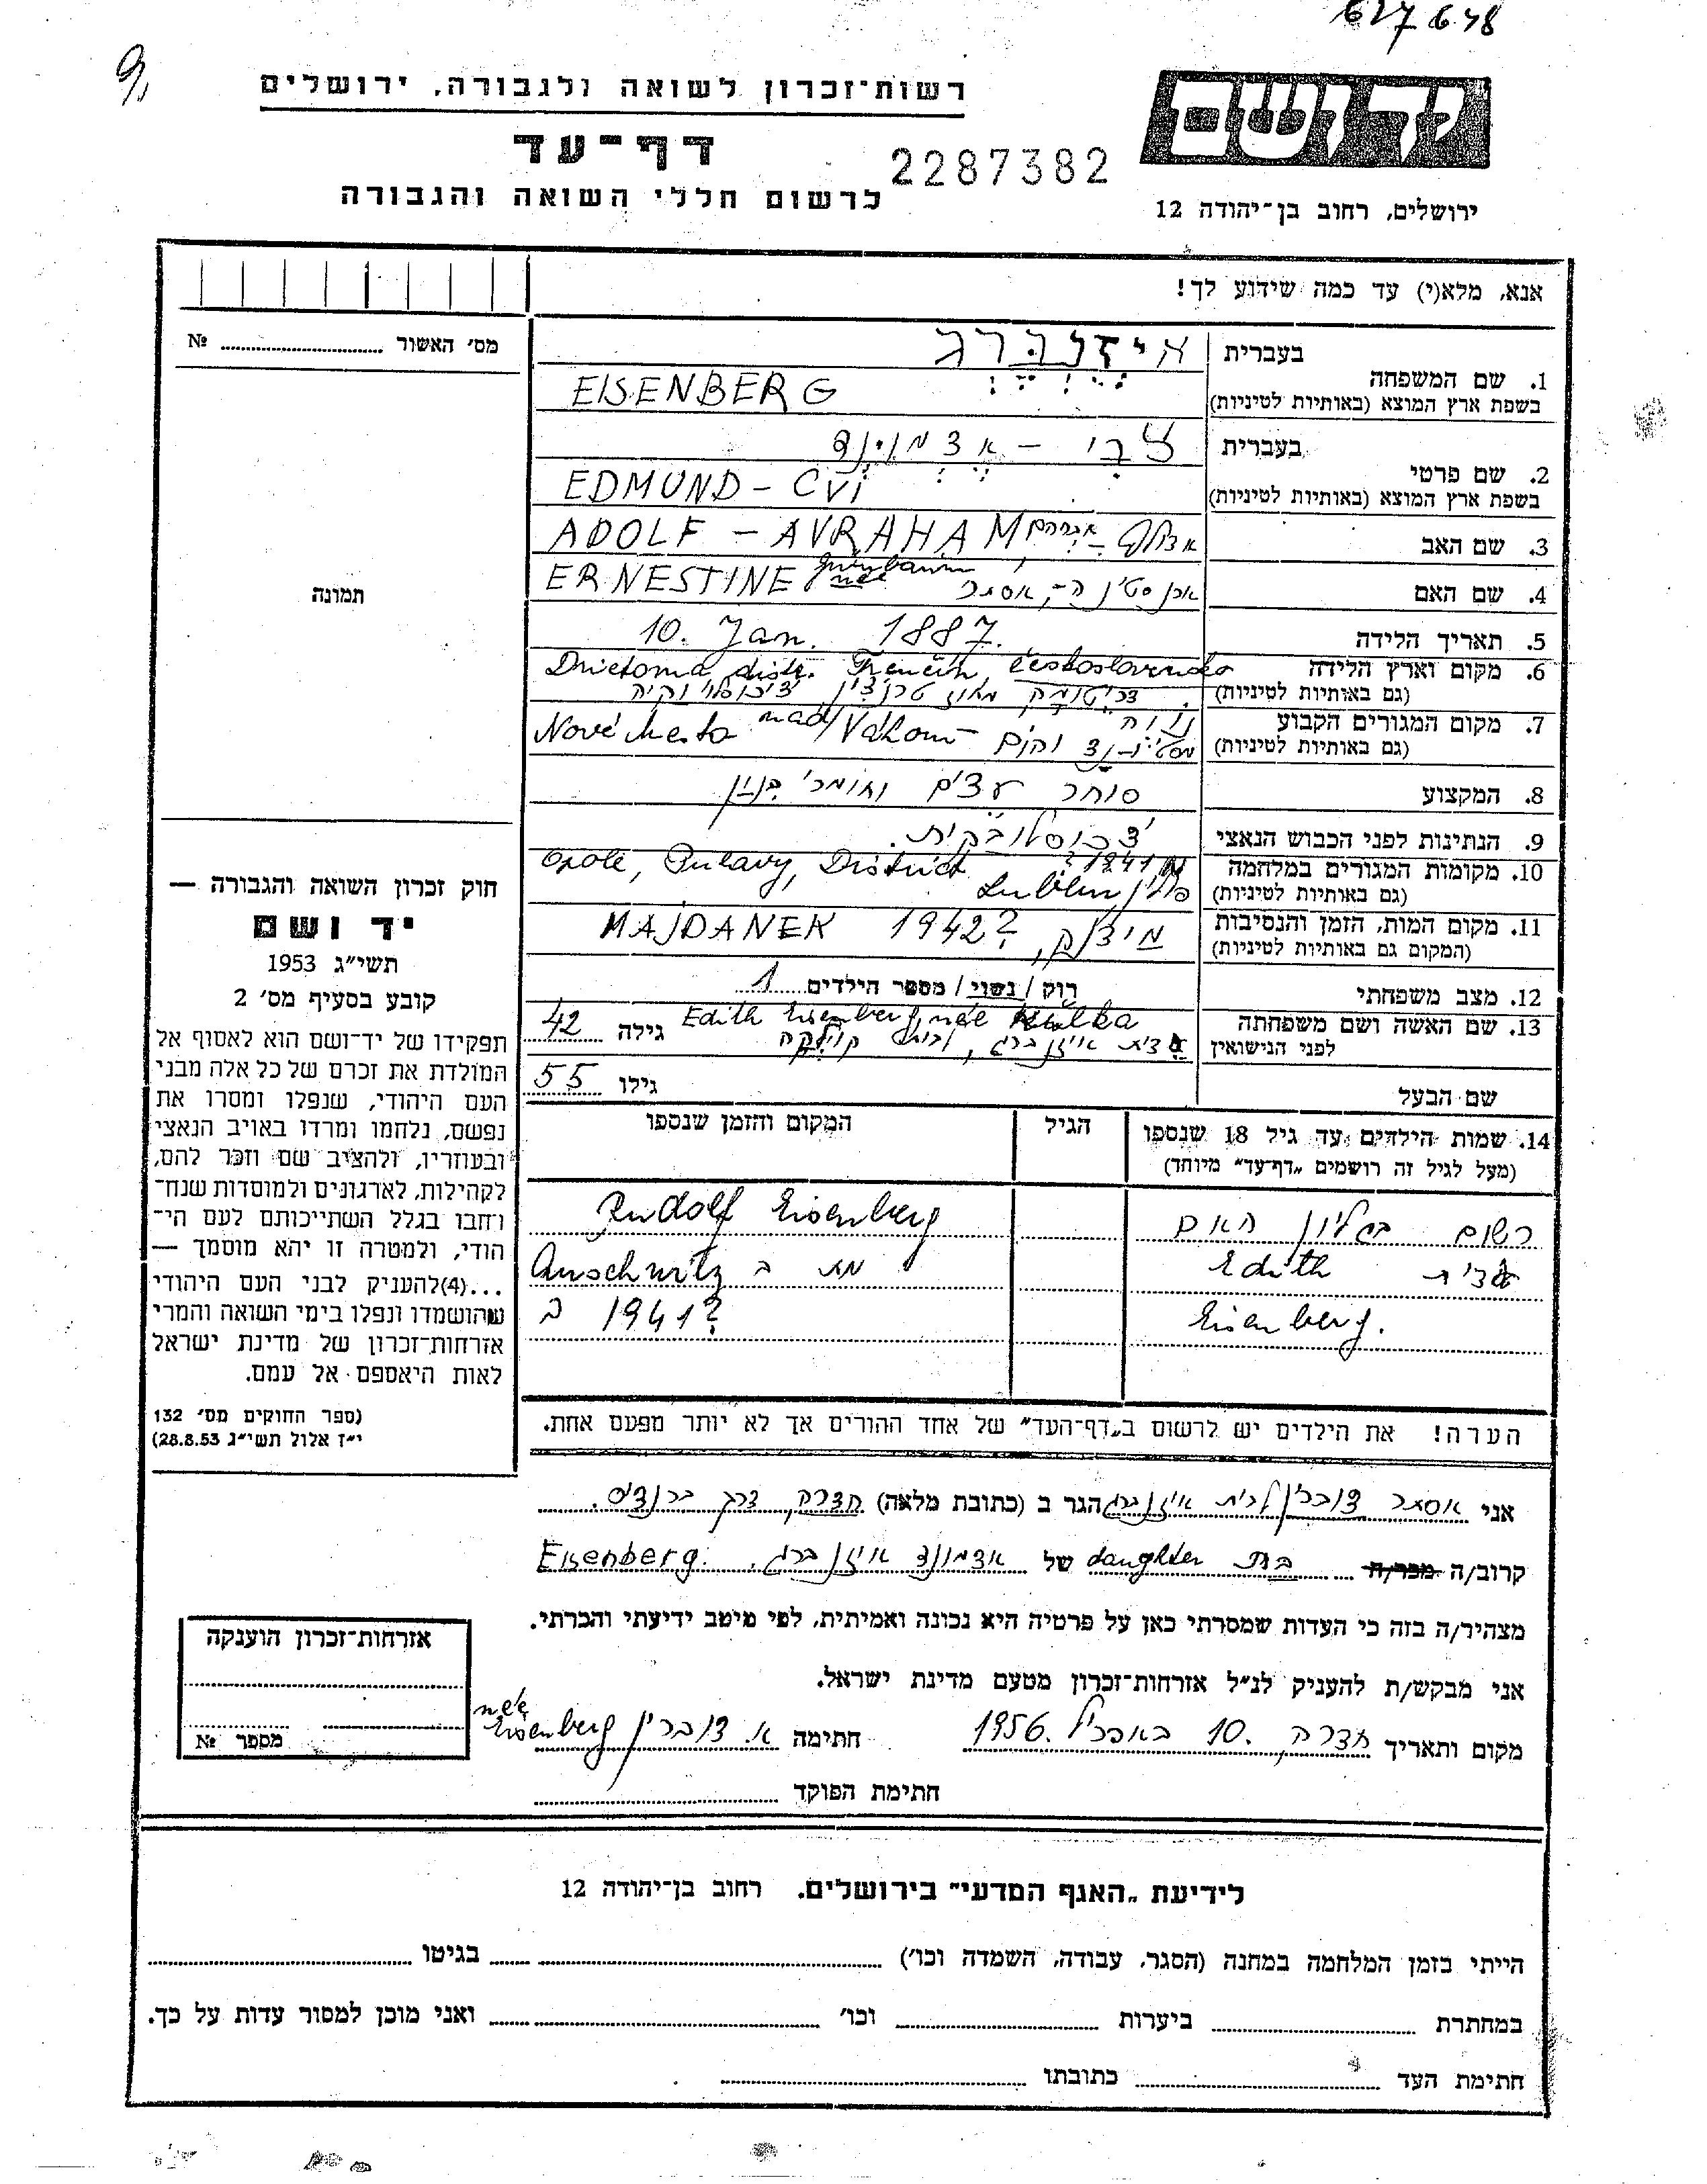 627648
רשות־זכרון לשואה ולגבורה, ירושלים
ידושם
דף־עד
2287382
לרשום חללי השואה והגבורה
ירושלים, רחוב בן־יהודה 12
אנא, מלא(י) עד כמה שידוע לך!
מס' האשור № 
בעברית איזנברג
1. שם המשפחה
בשפת ארץ המוצא (באותיות לטיניות) EISENBERG
בעברית צבי – אדמונד
2. שם פרטי
בשפת ארץ המוצא (באותיות לטיניות) EDMUND – CVI
3. שם האב אדולף – אברהם ADOLF – AVRAHAM
4. שם האם ארנסטינה – אסתר ERNESTINE née Grünbaum
5. תאריך הלידה 10. Jan. 1887.
6. מקום וארץ הלידה Drietoma distr. Trenčín, československo
(גם באותיות לטיניות) דריטומה מחוז טרנצ'ין צ'כוסלובקיה
7. מקום המגורים הקבוע נווה Nové Mesto nad/Váhom
(גם באותיות לטיניות) מסטו נד והום
8. המקצוע סוחר עצים וחומרי בנין
9. הנתינות לפני הכבוש הנאצי צ'כוסלובקית.
10. מקומות המגורים במלחמה Opole, Pulawy, District 1941?
(גם באותיות לטיניות) פולין Lublin
11. מקום המות, הזמן והנסיבות מידנק, MAJDANEK 1942?
(המקום גם באותיות לטיניות)
12. מצב משפחתי רוק / נשוי / מספר הילדים 1
13. שם האשה ושם משפחתה Edith Eisenberg née גילה 42
לפני הנישואין אדית איזנברג, לבית
שם הבעל גילו 55
14. שמות הילדים עד גיל 18 שנספו הגיל המקום והזמן שנספו
(מעל לגיל זה רושמים „דף־עד" מיוחד)
רשום בגליון האם Rudolf Eisenberg
אדית Edith מת ב Auschwitz
Eisenberg. ב 1941?
הערה! את הילדים יש לרשום ב„דף־העד" של אחד ההורים אך לא יותר מפעם אחת.
תמונה
חוק זכרון השואה והגבורה —
יד ושם
תשי"ג 1953
קובע בסעיף מס' 2
תפקידו של יד־ושם הוא לאסוף אל
המולדת את זכרם של כל אלה מבני
העם היהודי, שנפלו ומסרו את
נפשם, נלחמו ומרדו באויב הנאצי
ובעוזריו, ולהציב שם וזכר להם,
לקהילות, לארגונים ולמוסדות שנח־
רבו בגלל השתייכותם לעם הי־
הודי, ולמטרה זו יהא מוסמך —
...(4)להעניק לבני העם היהודי
שהושמדו ונפלו בימי השואה והמרי
אזרחות־זכרון של מדינת ישראל
לאות היאספם אל עמם.
(ספר החוקים מס' 132
י"ז אלול תשי"ג 28.8.53)
אני אסתר דוברין לבית איזנברג הגר ב (כתובת מלאה) חדרה, דרך ברנדיס.
קרוב/ה מכר/ה בת daughter של אדמונד איזנברג. Eisenberg.
מצהיר/ה בזה כי העדות שמסרתי כאן על פרטיה היא נכונה ואמיתית, לפי מיטב ידיעתי והכרתי.
אני מבקש/ת להעניק לנ"ל אזרחות־זכרון מטעם מדינת ישראל.
מקום ותאריך חדרה, 10. באפריל 1956. חתימה א. דוברין née Eisenberg
חתימת הפוקד
אזרחות־זכרון הוענקה
מספר №
לידיעת „האגף המדעי" בירושלים. רחוב בן־יהודה 12
הייתי בזמן המלחמה במחנה (הסגר, עבודה, השמדה וכו') בגיטו
במחתרת ביערות וכו' ואני מוכן למסור עדות על כך.
חתימת העד כתובתו